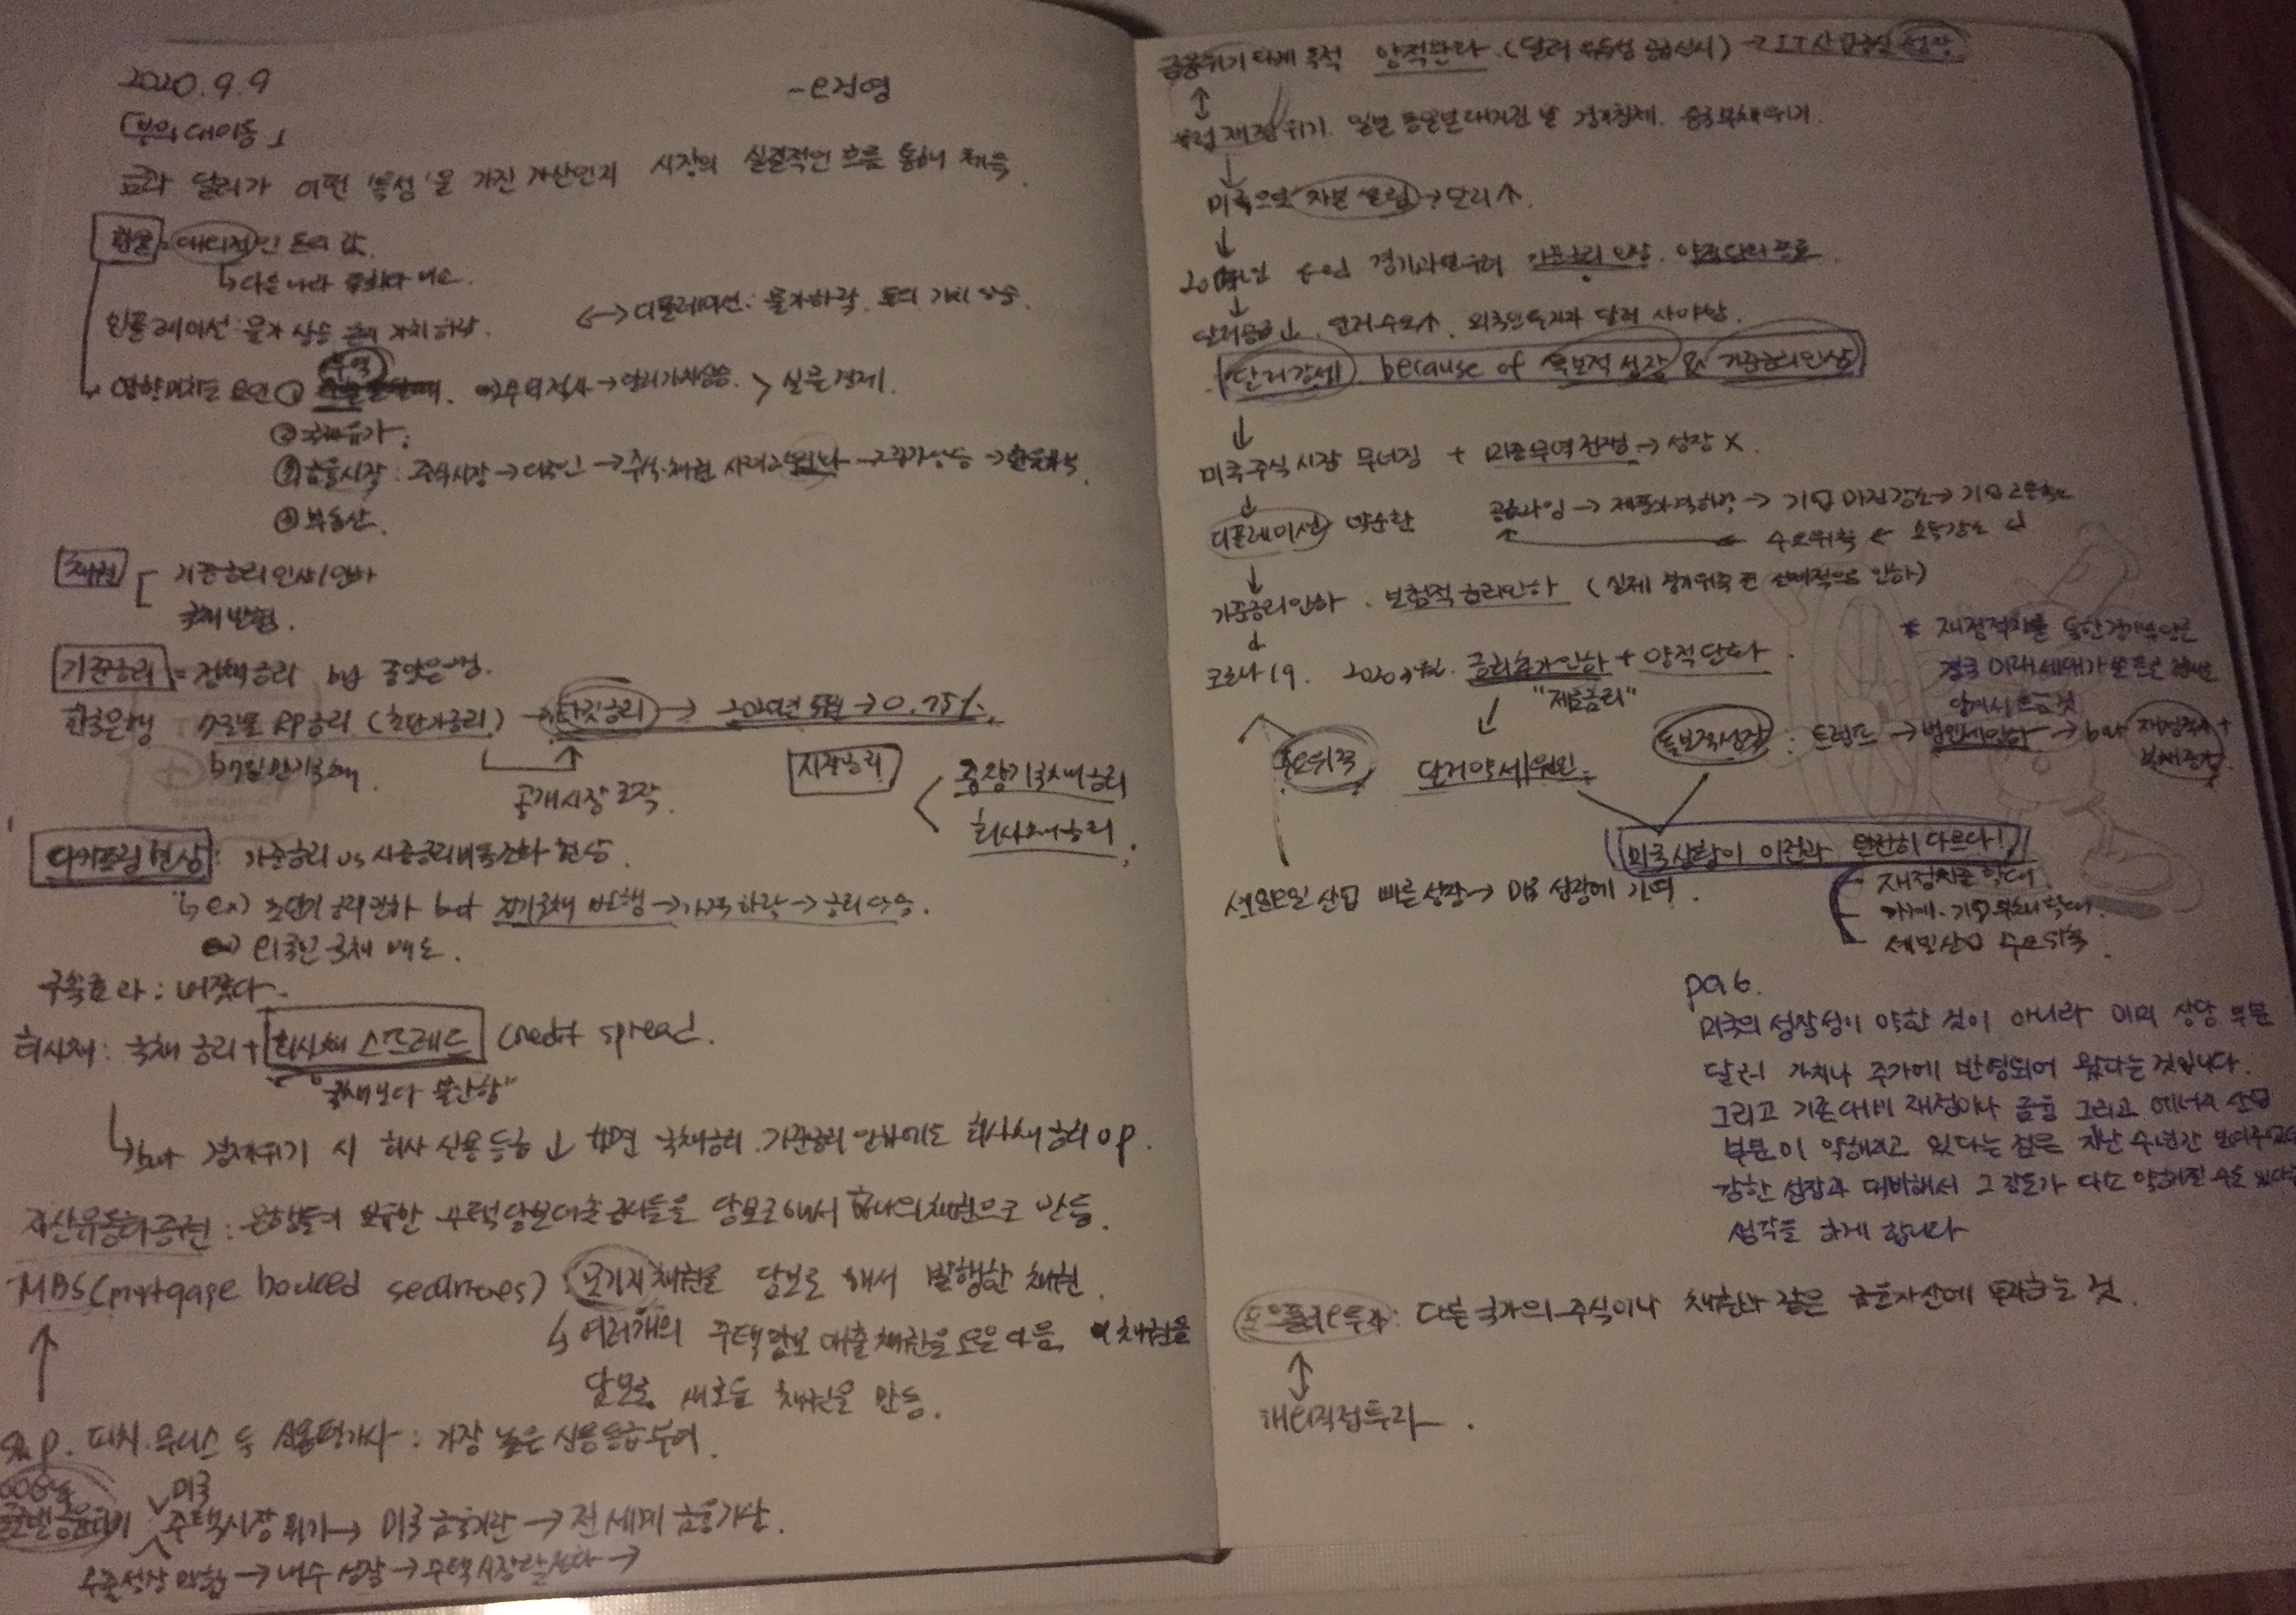 2020.9.9
「부의 대이동」 -오건영
금과 달러가 어떤 '특성'을 가진 자산인지 시장의 실질적인 흐름 통해 체득.
환율: 대외적인 돈의 값.
↳ 다른 나라 통화와 비교.
인플레이션: 물가 상승 돈의 가치 하락. ↔ 디플레이션: 물가하락. 돈의 가치 상승
영향미치는 요인 ① 무역 → 달러가치상승. > 실물경제.
② 국제유가.
③ 금융시장: 주식시장 → 외국인 → 주식.채권 사려고
④ 부동산.
채권 [ 기준금리 인상/인하
국채 발행.
기준금리 = 정책금리 by 중앙은행.
한국은행 7일물 RP금리 (초단기금리) → 타깃금리 → 2020년 5월 → 0.75%.
↳ 7일만기
공개시장 조작.
시장금리 < 중장기국채금리
회사채금리.
디커플링 현상: 기준금리 vs 시중금리 비동조화 현상.
↳ ex) 초단기 금리인하 but 장기국채 발행 → 가격하락 → 금리상승.
외국인 국채 매도.
구축효과: 내쫓다.
회사채: 국채 금리 + 회사채 스프레드 credit spread.
"국채보다 불안함"
경제위기 시 회사 신용등급 ↓ 하면 국채금리. 기준금리 인하에도 회사채 금리 up.
자산유동화증권: 은행들이 보유한 주택담보대출 을 담보로 해서 하나의 채권으로 만듦.
MBS(mortgage backed securities): 모기지 채권을 담보로 해서 발행한 채권.
↳ 여러개의 주택담보 대출채권을 모은 다음, 이 채권을
담보로 새로운 채권을 만듦.
S&P. 피치. 무디스 등 신용평가사: 가장 높은 신용등급 부여.
글로벌금융위기 미국 주택시장 위기 → 미국 금융기관 → 전 세계 금융기관.
수출성장 → 내수 성장 → 주택시장 →
금융위기 타개 목적 양적완화. (달러 유동성 공급실시) → IT산업 성장
유럽 재정위기. 일본 동일본대지진 발 경기침체.
미국으로 자본 쏠림 → 달러↑.
기준금리 인상.
달러공급↓. 달러수요↑. 외국인 투자자 달러 사야함.
달러강세. because of 독보적 성장 & 기준금리인상
미국 주식 시장 무너짐 + 미중무역전쟁 → 성장 X.
디플레이션 악순환 공급과잉 → 제품가격하락 → 기업 마진 감소 → 기업
수요위축 ← 소득감소
기준금리인하. 보험적 금리인하 (실제 경기위축 전 선제적으로 인하)
* 재정적자를 통한 경기부양은
결국 미래세대가
코로나19. 2020. 금리추가인하 + 양적완화.
"제로금리"
수요위축 달러약세원인: 독보적성장: 트럼프 → 법인세인하 → but 재정적자 +
부채증가
미국상황이 이전과 완전히 다르다!
재정적자 확대.
가계. 기업 부채 확대.
셰일산업 수요위축.
셰일오일 산업 빠른 성장 → 미국 성장에 기여.
미국의 성장성이 약한 것이 아니라 이미 상당 부분
달러 가치나 주가에 반영되어 왔다는 것입니다.
그리고 기존 대비 재정이나 금융 그리고 에너지 산업
부문이 약해지고 있다는 점은 지난 수년간 보여주었던
강한 성장과 대비해서 그 강도가 다소 약해질 수도 있다는
생각을 하게 합니다
포트폴리오투자: 다른 국가의 주식이나 채권과 같은 금융자산에 투자하는 것.
↕
해외직접투자.